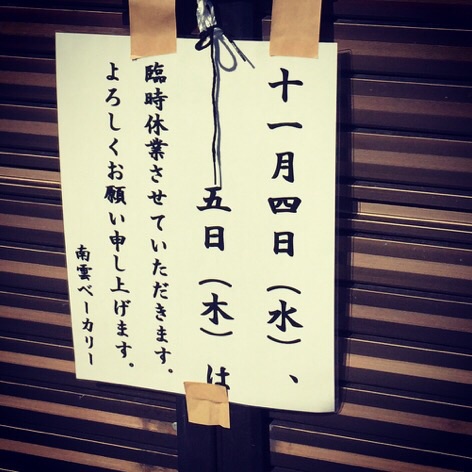 十一月四日（水）、
五日（木）は
臨時休業させていただきます。
よろしくお願い申し上げます。
南雲ベーカリー